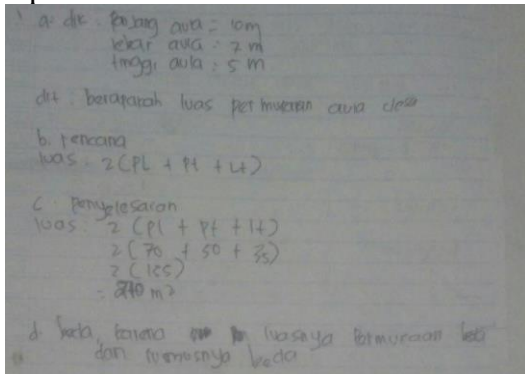 a. dik. Panjang aula = 10m
lebar aula : 7 m
tinggi aula : 5 m
dit. berapakah luas permukaan aula desa
b. rencana
luas = 2(PL + Pt + Lt)
c penyelesaian
luas 2 (pl + pt + lt)
2 (70 + 50 + 35)
2 (155)
= m²
d. beda, karena luasnya Permukaan
dan rumusnya beda